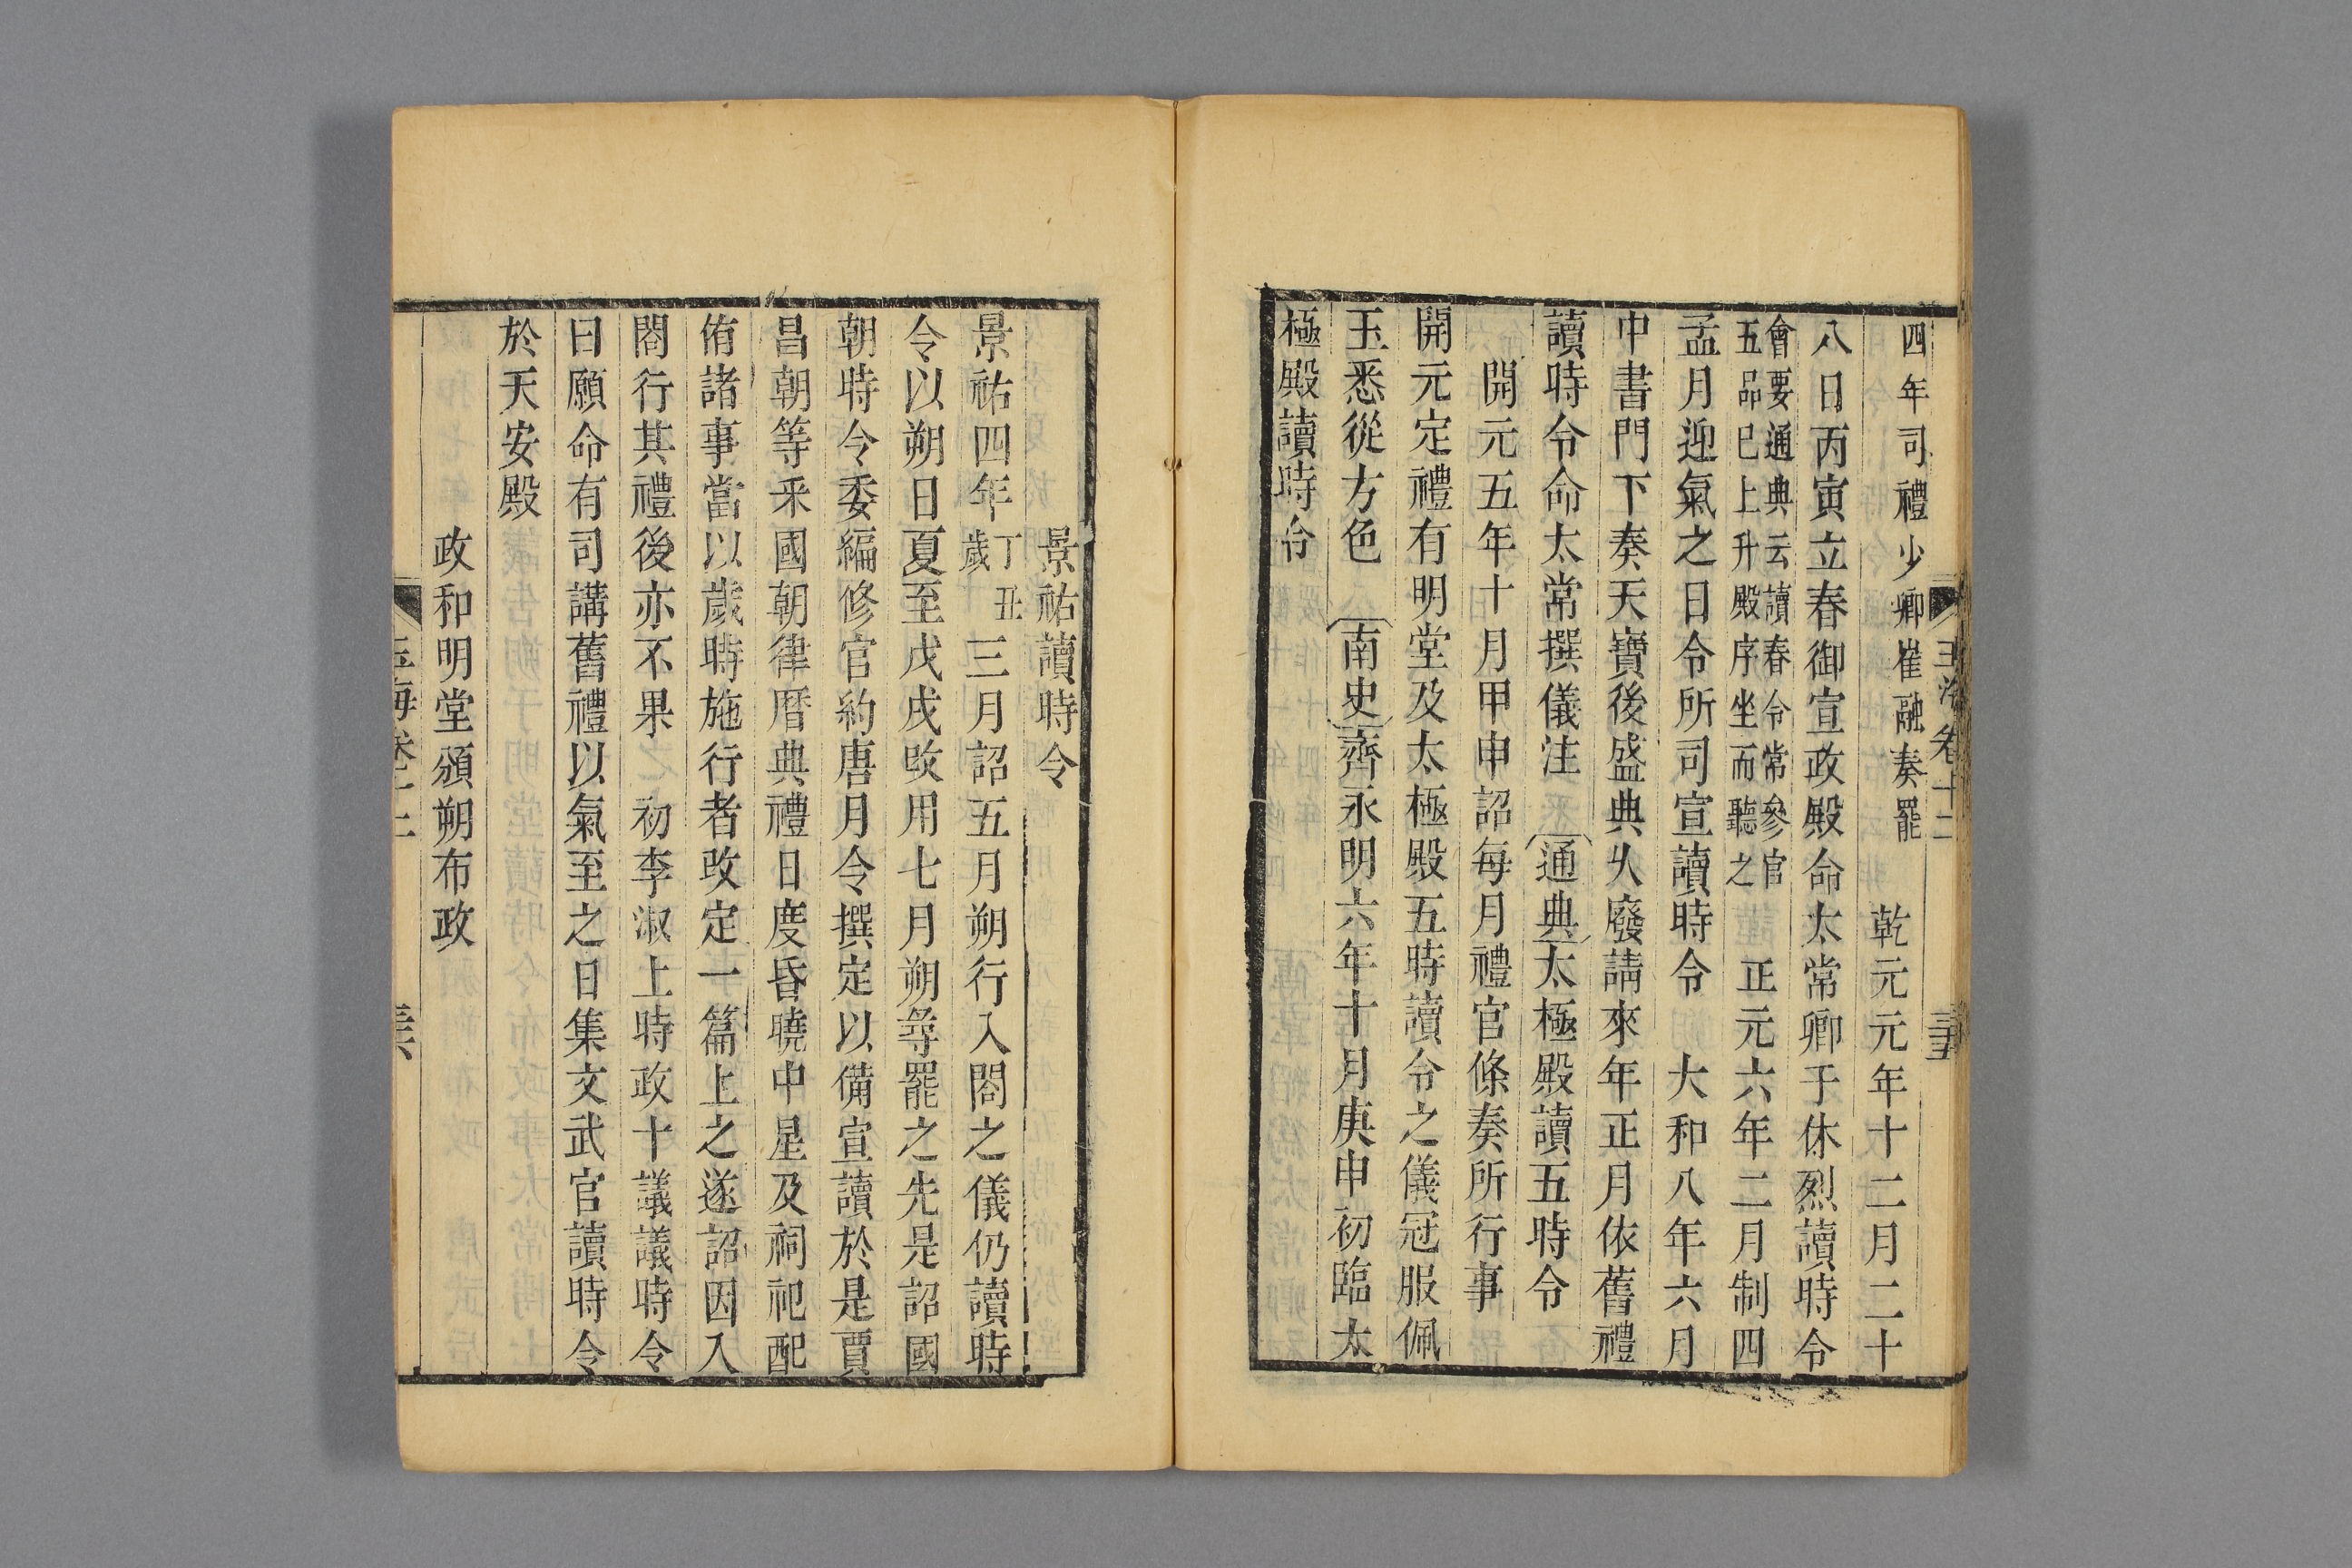 四年司禮少卿崔融奏罷　乾元元年十二月二十
八日丙寅立春御宣政殿命太常卿于休烈讀時令
會要通典云讀春令常參官五品已上升殿序坐而聽之　正元六年二月制四
孟月迎氣之日令所司宣讀時令　大和八年六月
中書門下奏天寶後盛典久廢請來年正月依舊禮
讀時令命太常撰儀注　通典太極殿讀五時令
開元五年十月甲申詔每月禮官條奏所行事
開元定禮有明堂及太極殿五時讀令之儀冠服佩
玉悉從方色　南史齊永明六年十月庚申初臨太
極殿讀時令
玉海卷十二
景祐讀時令
景祐四年丁丑歲三月詔五月朔行入閤之儀仍讀時
令以朔日夏至戊戌改用七月朔尋罷之先是詔國
朝時令委編修官約唐月令撰定以備宣讀於是賈
昌朝等采國朝律曆典禮日度昏曉中星及祠祀配
侑諸事當以歲時施行者改定一篇上之遂詔因入
閤行其禮後亦不果　初李淑上時政十議議時令
曰願命有司講舊禮以氣至之日集文武官讀時令
於天安殿
政和明堂頒朔布政
玉海卷十二